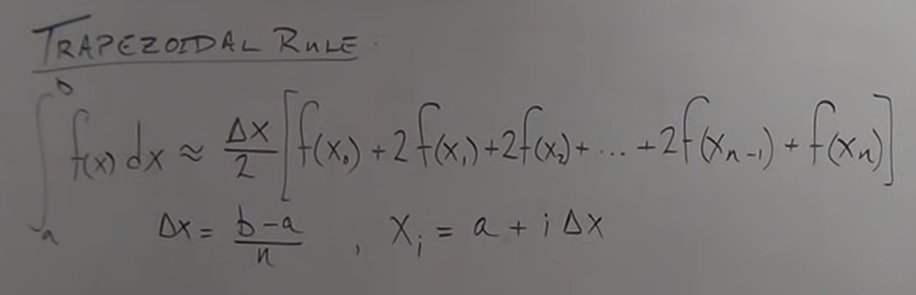 TRAPEZOIDAL RULE:
∫ₐᵇ f(x) dx ≈ Δx/2 [f(x₀) + 2f(x₁) + 2f(x₂) + ... + 2f(xₙ₋₁) + f(xₙ)]
Δx = b-a/n , xᵢ = a + i Δx